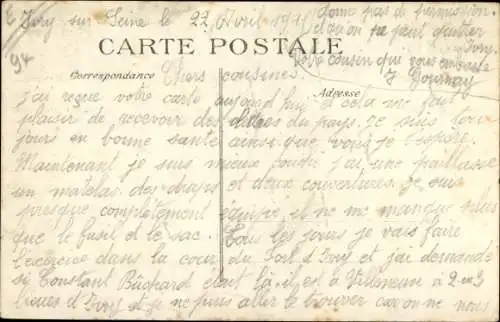 Ivry sur Seine le 22 Avril
donne pas de permission
et qu'on ne peut quitter
Ivry.
Votre cousin que vous embrasse
J Gournay
CARTE POSTALE
Correspondance
Adresse
Chers cousines.
j'ai reçue votre carte aujourd'hui et cela me fait
plaisir de recevoir des du pays. Je suis touj
jours en bonne santé ainsi que vous je l'espère.
Maintenant je suis mieux couché j'ai une paillasse
un matelas des draps et deux couvertures. Je suis
presque complètement équipé il ne me manque plus
que le fusil et le sac. Tous les jours je vais faire
l'exercice dans la cour du Fort d'Ivry et j'ai demandé
si Constant Buchard était là il est à Villeneuve à 2 ou 3
lieues d'Ivry et je ne puis aller le trouver car on ne nous